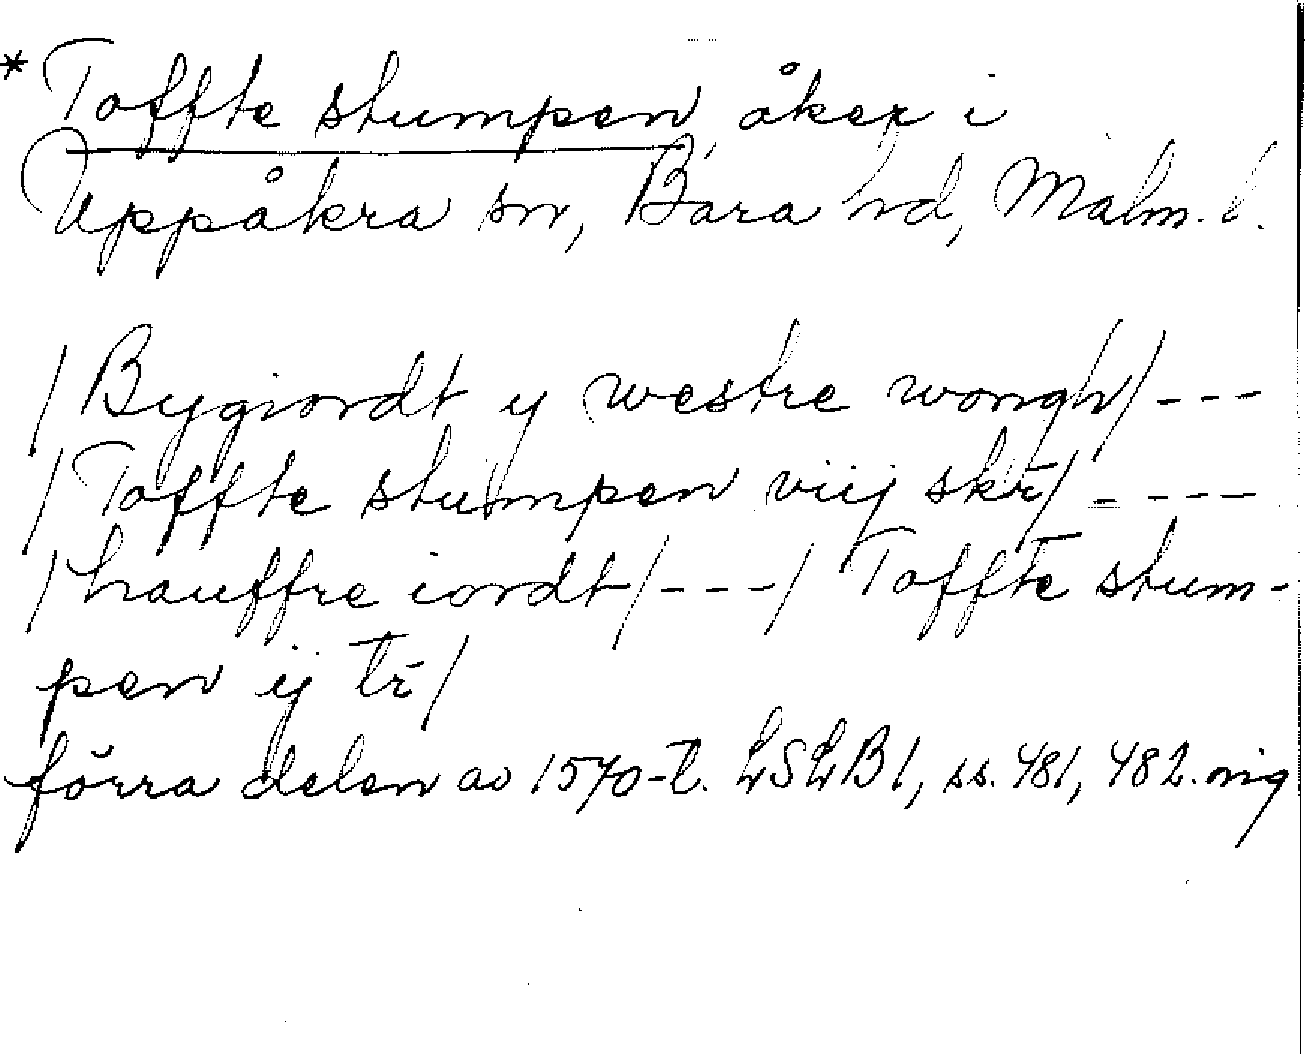 * Toffte stumpen åker i
Uppåkra sn, Bara hd, Malm. l.
/Bygiordt y westre wongh/ ---
/Toffte stumpen viij skr̄/ ----
/hauffre iordt/ ---/ Toffte stum-
pen ij tr̄/
förra delen av 1570-t. LSLB 1, ss. 481, 482. mg